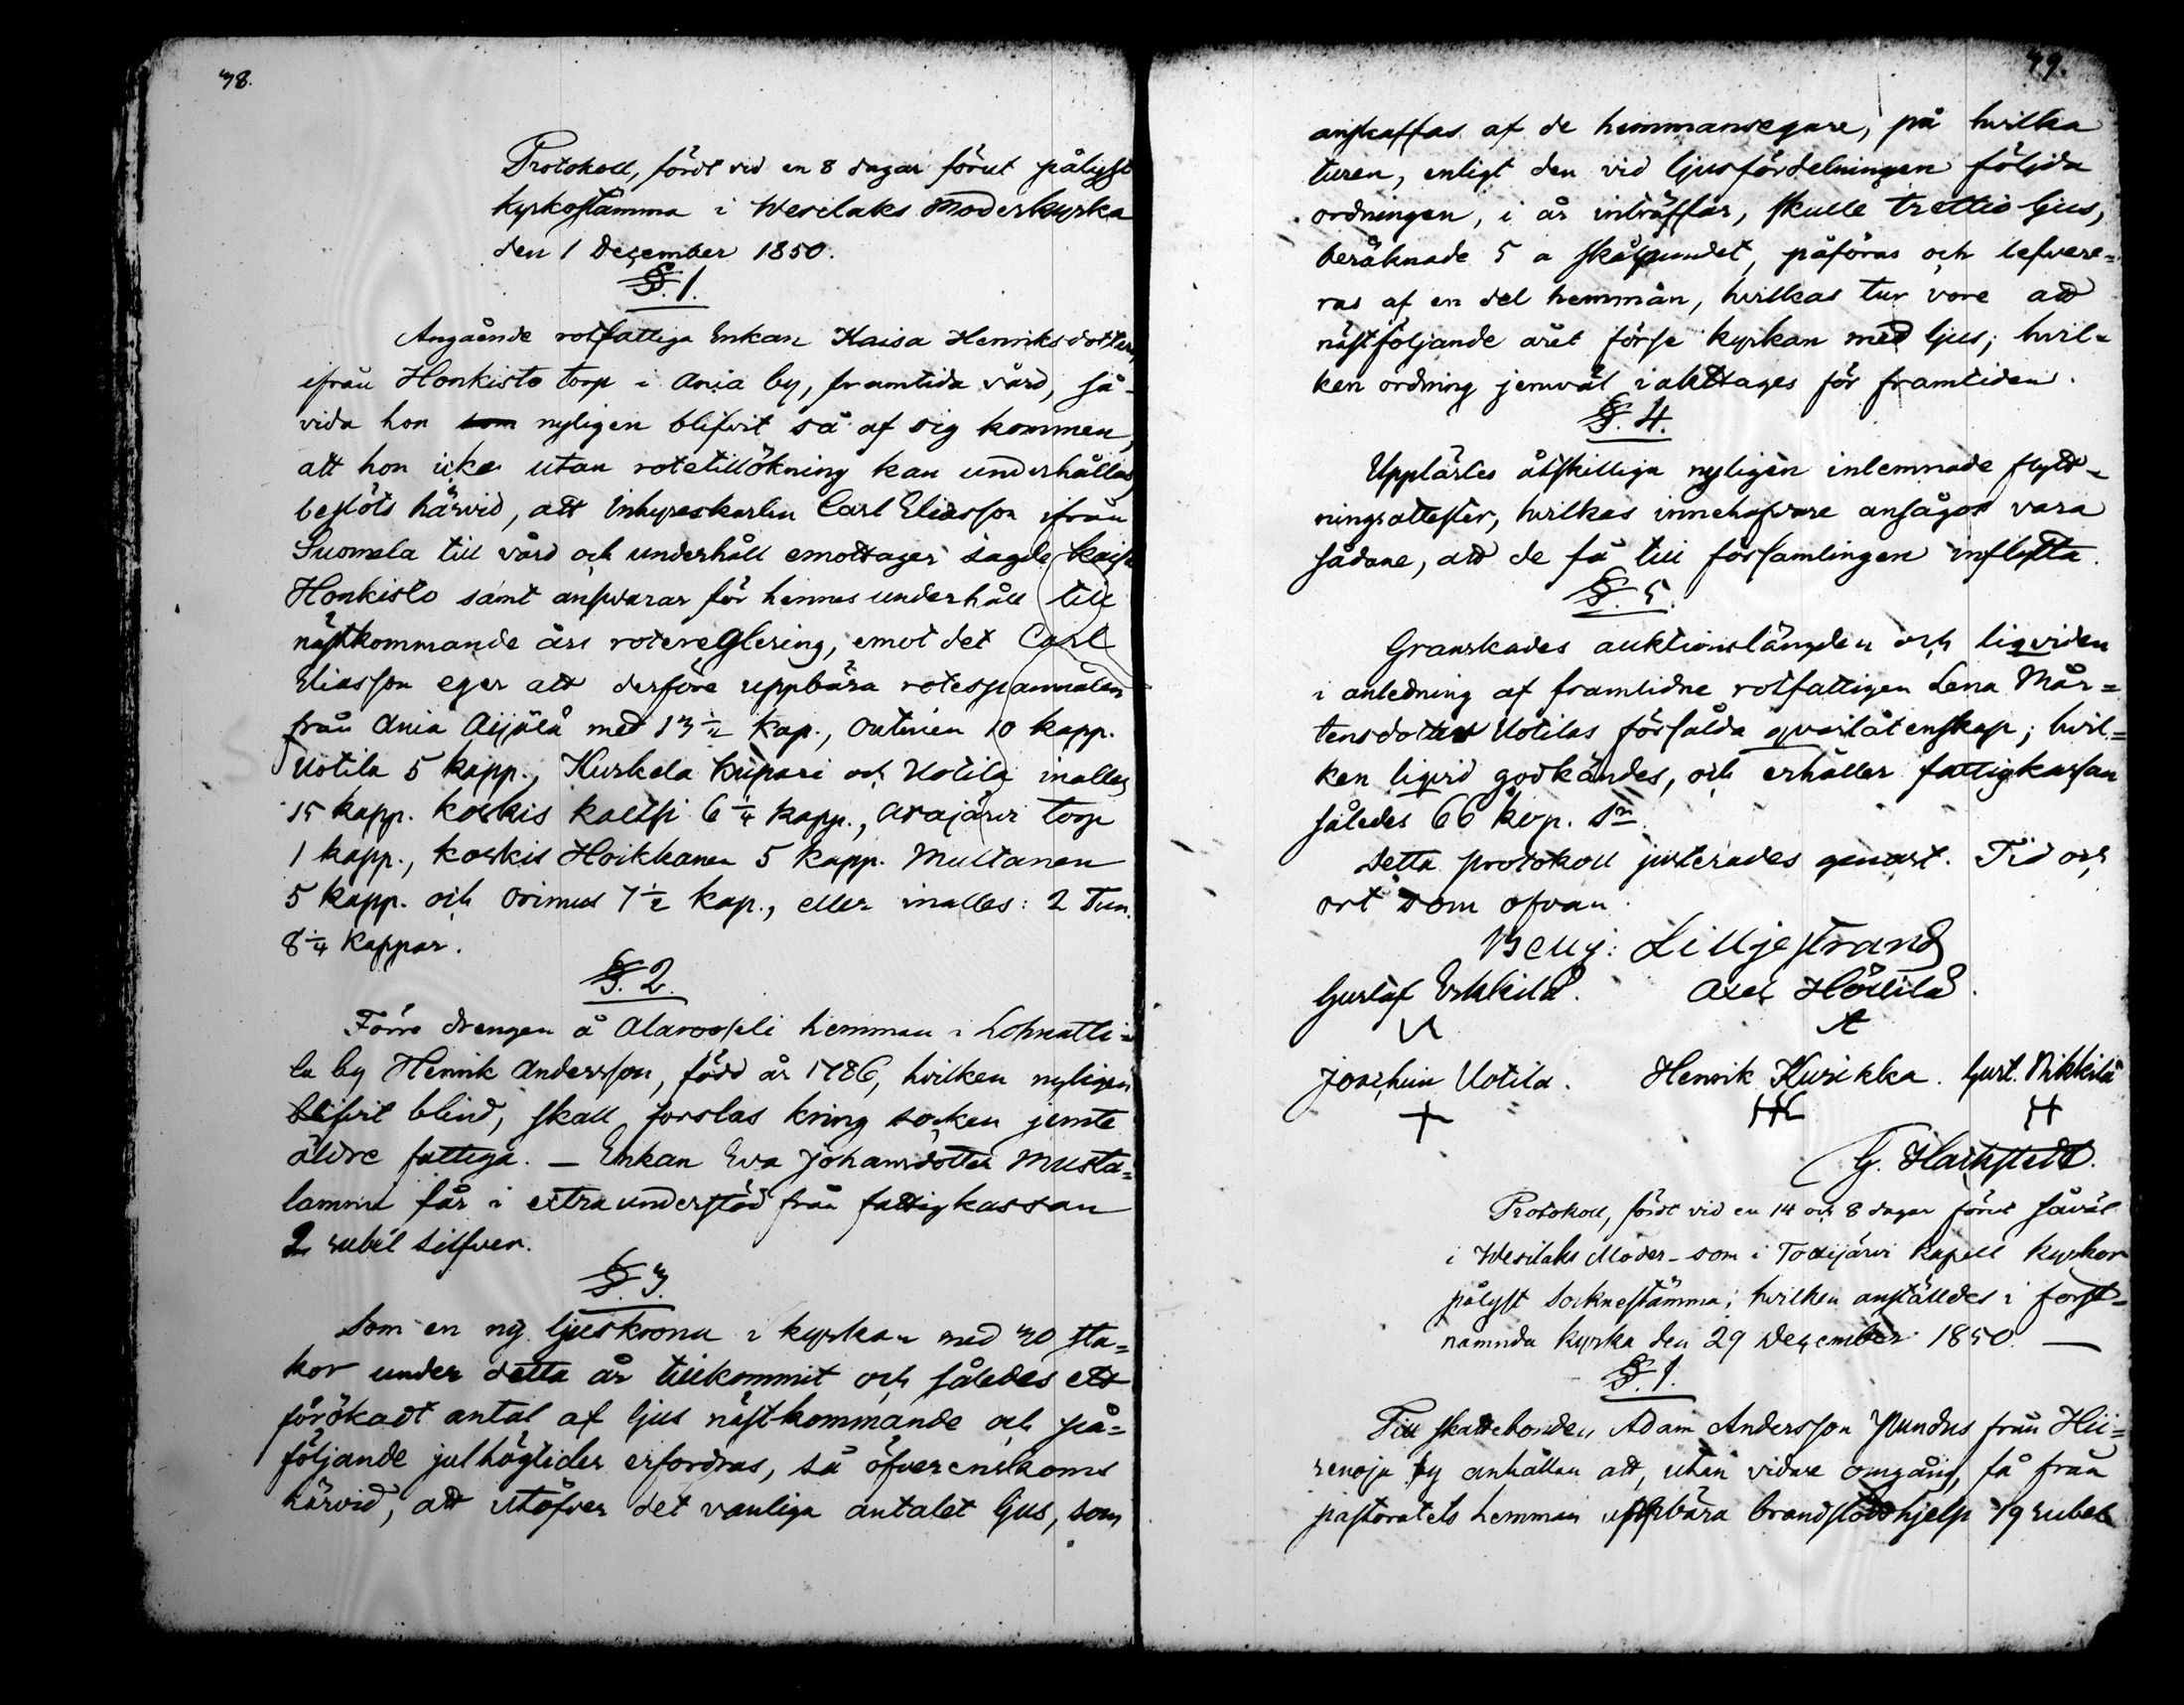 38.
Protokoll, fördt vid en 8 dagar förut pålyst
kyrkostämma i Wesilaks Moderkyrka
den 1 December 1850.
§. 1.
Angående rotfattiga Enkan Kaisa Henriksdotters
ifrån Honkisto torp i Ania by, framtida vård, så-
vida hon som nyligen blifvit så af sig kommen,
att hon icke utan rotetillökning kan underhållas,
beslöts härvid, att Inhyseskarlen Carl Eliasson ifrån
Suomela till vård och underhåll emottager sagde Kaisa
Honkisto samt ansvarar för hennes underhåll till
nästkommande års rotereglering, emot det Carl
Eliasson eger att derföre uppbära rotespanmålen
från Ania Äijälä med 13 1/2 kap., Outinen 10 kapp.
Uotila 5 kapp., Kurkela Krupari och Uotila inalles
15 kapp. koskis kaltsi 6 1/4 kapp., Arajärvi torp
1 kapp., koskis Hoikkanen 5 kapp. Multanen
5 kapp. och Orimus 7 1/2 kap., eller inalles: 2 Tun.
8 1/4 kappar.
§. 2.
Förre drengen å Alaroskeli hemman i Lohnatti-
la by Henrik Andersson, född år 1786, hvilken nyligen
blifvit blind, skall forslas kring socken jemte
äldre fattiga. — Enkan Eva Johansdotter Musta-
lamme får i extra understöd från fattigkassan
2 rubel silfver.
§. 3.
Som en ny ljuskrona i kyrkan med 30 sta=
kor under detta år tillkommit och således ett
förökadt antal af ljus nästkommande och på=
följande julhögtider erfordras, så öfverenskoms
härvid, att utöfver det vanliga antalet ljus, som
39.
anskaffas af de hemmansegare, på hvilka
turen, enligt den vid ljusfördelningen följda
ordningen, i år inträffar, skulle trettio ljus,
beräknade 5 a skålpundet, påföras och lefvere=
ras af en del hemman, hvilkas tur vore att
nästföljande året förse kyrkan med ljus; hvil=
ken ordning jemväl iakttages för framtiden.
§. 4.
Upplästes åtskilliga nyligen inlemnade flytt-
ningsattester, hvilkas innehafvare ansågos vara
sådane, att de få till församlingen inflytta.
§. 5.
Granskades auktionslängden och liqviden
i anledning af framlidne rotfattigen Lena Mår=
tensdotter Uotilas försålda qvarlåtenskap; hvil=
ken liqvid godkändes, och erhåller fattigkassan
således 66 kop. Sr.
Detta protokoll justerades genast. Tid och
ort som ofvan.
Benj: Lilljestrand
Gustaf Erkkilä. Axel Hörtilä.
Joachim Uotila. Henrik Kurikka. Gust. Nikkilä
G. Hackstedt.
Protokoll, fördt vid en 14 och 8 dagar förut såväl
i Wesilaks Moder- som i Tottijärvi kapell kyrkor
pålyst Socknestämma, hvilken anställdes i först-
nämnda kyrka den 29 December 1850. —
§. 1.
Till skattebonden Adam Andersson Pundus från Hii=
renoja by anhållan att, utan vidare omgång, få från
pastoratets hemman uppbära brandstodshjelp 19 rubel